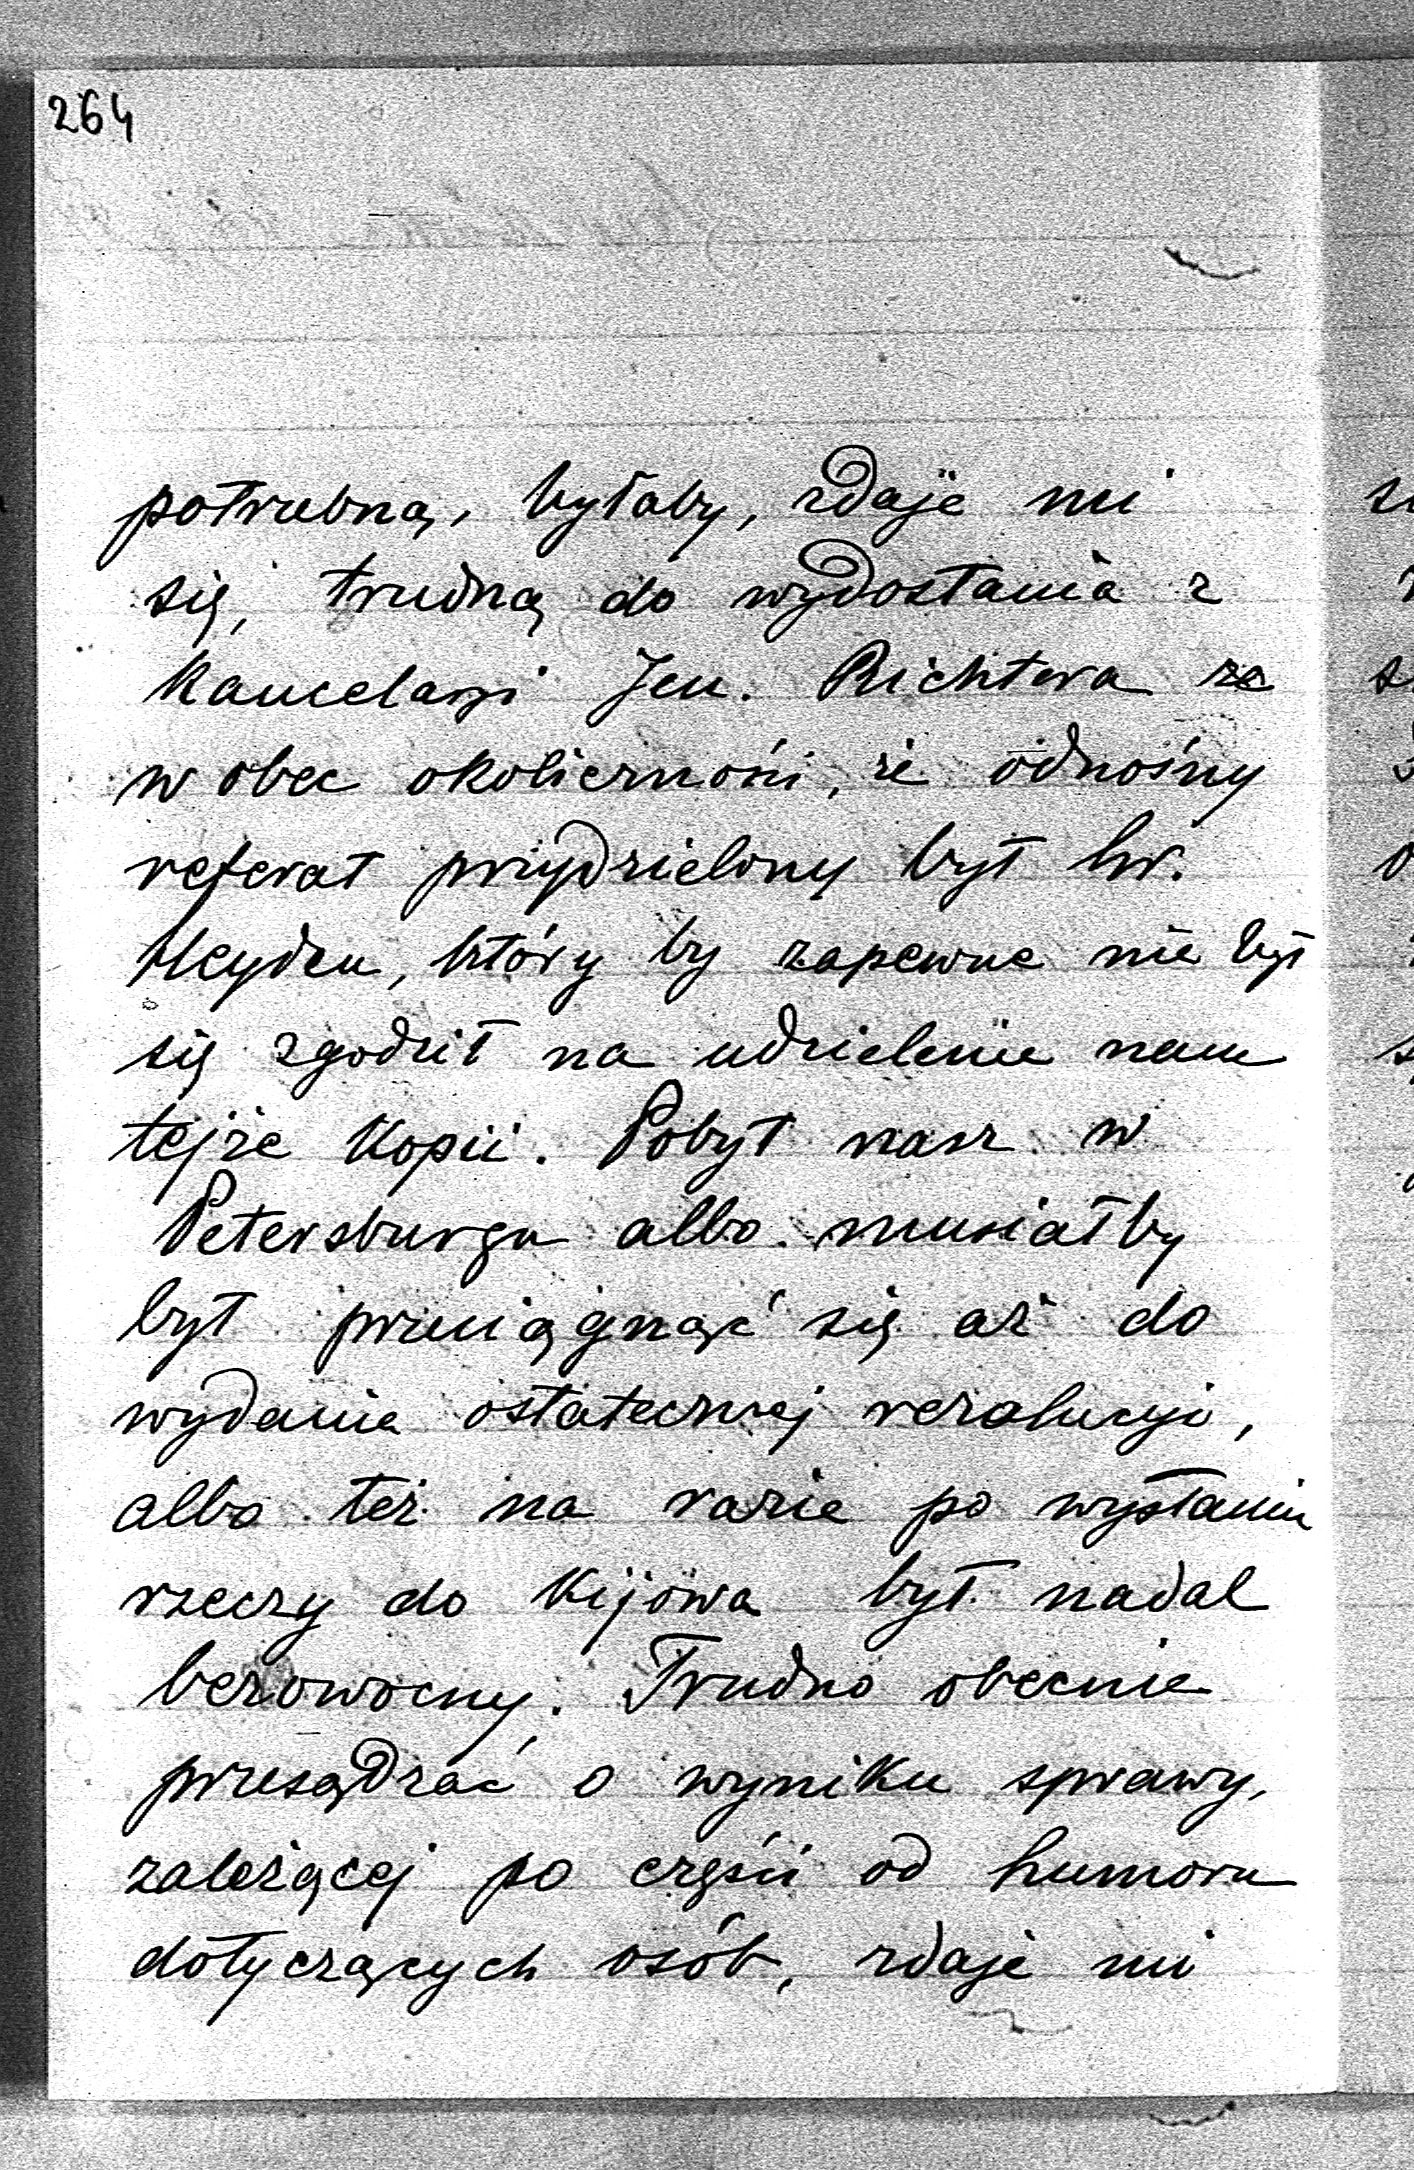 264
potrzebną, byłaby, zdaje mi
się, trudną do wydostania z
Kancelaryi Jen. Richtera ze
w obec okoliczności, że odnośny
referat przydzielony był hr.
Heyden, który by zapewne nie był
się zgodził na udzielenie nam
tejże Kopii. Pobyt nasz w
Petersburgu albo musiałby
był przeciągnąć się aż do
wydania ostatecznej rezolucyi,
albo też na razie po wysłaniu
rzeczy do Kijowa był nadal
bezowocny. Trudno obecnie
przesądzać o wyniku sprawy,
zależącej po części od humoru
dotyczących osób, zdaje mi